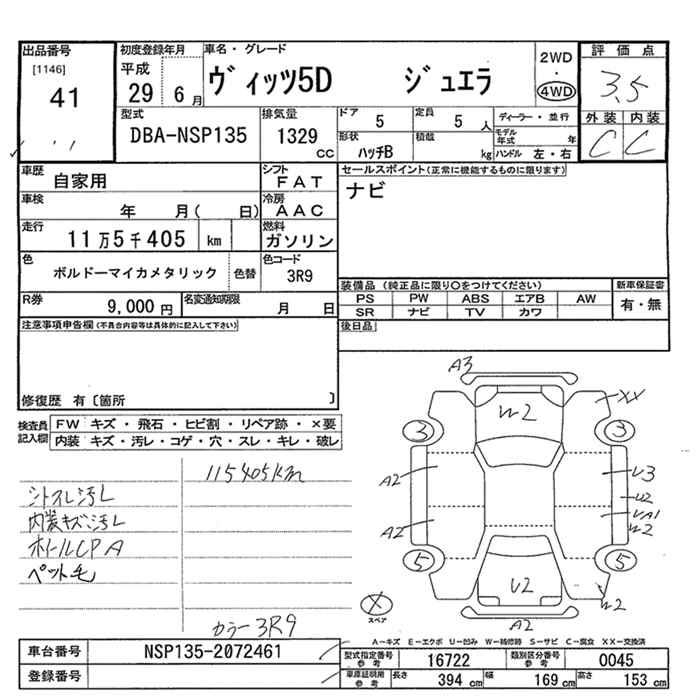 出品番号
[1146]
41
初度登録年月
平成
29 6月
車名・グレード
ヴィッツ5D ジュエラ
2WD
・
4WD
評価点
3.5
外装 内装
C C
型式
DBA-NSP135
排気量
1329 cc
ドア 5
定員 5 人
形状 ハッチB
積載 kg
ディーラー・並行
モデル年式 年
ハンドル 左・右
車歴
自家用
シフト
FAT
車検
年 月( 日)
冷房
AAC
走行
11万5千405 km
燃料
ガソリン
色
ボルドーマイカメタリック
色替
色コード
3R9
R券
9,000円
名変通知期限
月 日
セールスポイント(正常に機能するものに限ります)
ナビ
装備品(純正品に限り○をつけてください)
PS PW ABS エアB AW
SR ナビ TV カワ
新車保証書
有・無
後日品
注意事項申告欄(不具合内容等は具体的に記入して下さい)
修復歴 有〔箇所 〕
検査員記入欄
FW キズ・飛石・ヒビ割・リペア跡・×要
内装 キズ・汚レ・コゲ・穴・スレ・キレ・破レ
115405km
シートスレ汚レ
内装キズ汚レ
ホイールCPA
ペット毛
カラー3R9
A3
XX
W2
3 3
A2 U3
U2
UA1
A2 W2
5 5
U2
W2
A2
X
スペア
A-キズ E-エクボ U-凹み W-補修跡 S-サビ C-腐食 XX-交換済
車台番号
NSP135-2072461
登録番号
型式指定番号参考 16722
類別区分番号参考 0045
車庫証明用参考
長さ 394 cm
幅 169 cm
高さ 153 cm